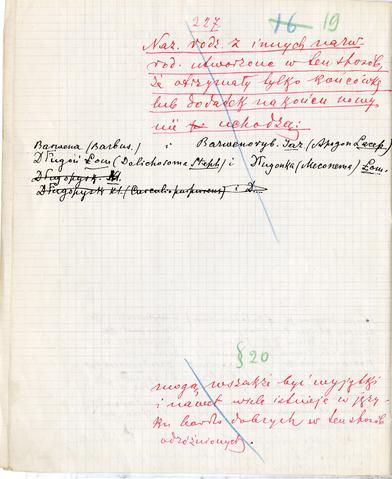 227
16 19
Naz. rodz. z innych nazw
rod. utworzone w ten sposób,
że otrzymały tylko końcówkę
lub dodatek na końcu nowy
nie uchodzą:
Barwena (Barbus.) i Barwenoryb. Tar. (Apogon Lacep.)
Długoń Łom. (Dolichosoma Steph.) i Długonka (Meconema) Łom.
Długopysk. Kl.
Długopysk Kl. (Curculio purpureus) i D...
§ 20
mogą wszakże być wyjątki
i nawet wiele istnieje w języ-
ku bardzo dobrych w ten sposób
odróżnionych.